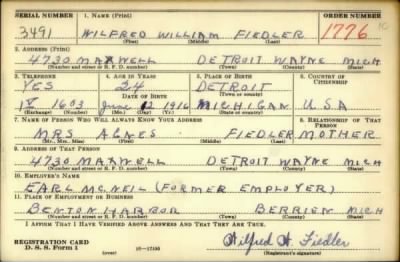 SERIAL NUMBER 1. NAME (Print) ORDER NUMBER
3491 WILFRED WILLIAM FIEDLER 1776
(First) (Middle) (Last)
2. ADDRESS (Print)
4730 MAXWELL DETROIT WAYNE MICH
(Number and street or R. F. D. number) (Town) (County) (State)
3. TELEPHONE 4. AGE IN YEARS 5. PLACE OF BIRTH 6. COUNTRY OF CITIZENSHIP
YES 24 DETROIT
DATE OF BIRTH (Town or county)
IV 1603 June 12 1916 MICHIGAN U.S.A
(Exchange) (Number) (Mo.) (Day) (Yr.) (State or country)
7. NAME OF PERSON WHO WILL ALWAYS KNOW YOUR ADDRESS 8. RELATIONSHIP OF THAT PERSON
MRS AGNES FIEDLER MOTHER
(Mr., Mrs., Miss) (First) (Middle) (Last)
9. ADDRESS OF THAT PERSON
4730 MAXWELL DETROIT WAYNE MICH
(Number and street or R. F. D. number) (Town) (County) (State)
10. EMPLOYER'S NAME
EARL MC.NEIL (FORMER EMPLOYER)
11. PLACE OF EMPLOYMENT OR BUSINESS
BENTON HARBOR BERRIEN MICH
(Number and street or R. F. D. number) (Town) (County) (State)
I AFFIRM THAT I HAVE VERIFIED ABOVE ANSWERS AND THAT THEY ARE TRUE.
REGISTRATION CARD
D. S. S. Form 1 (over) Wilfred W. Fiedler
(Registrant's signature)